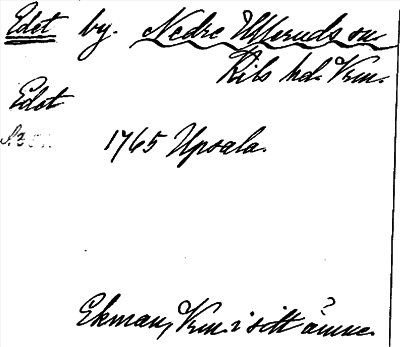 Edet by. Nedre Ulleruds sn
Kils hd. Vrm.
Edet
1765 Upsala.
Ekman, Vrm. i sitt ämne.